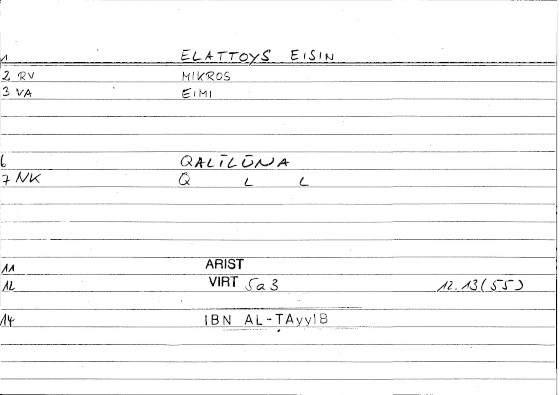 1 ELATTOYS EISIN
2 RV MIKROS
3 VA EIMI
6 QALĪLŪNA
7 NK Q L L
11 ARIST
12 VIRT 5a3 12.13(55)
14 IBN AL-ṬAyyIB